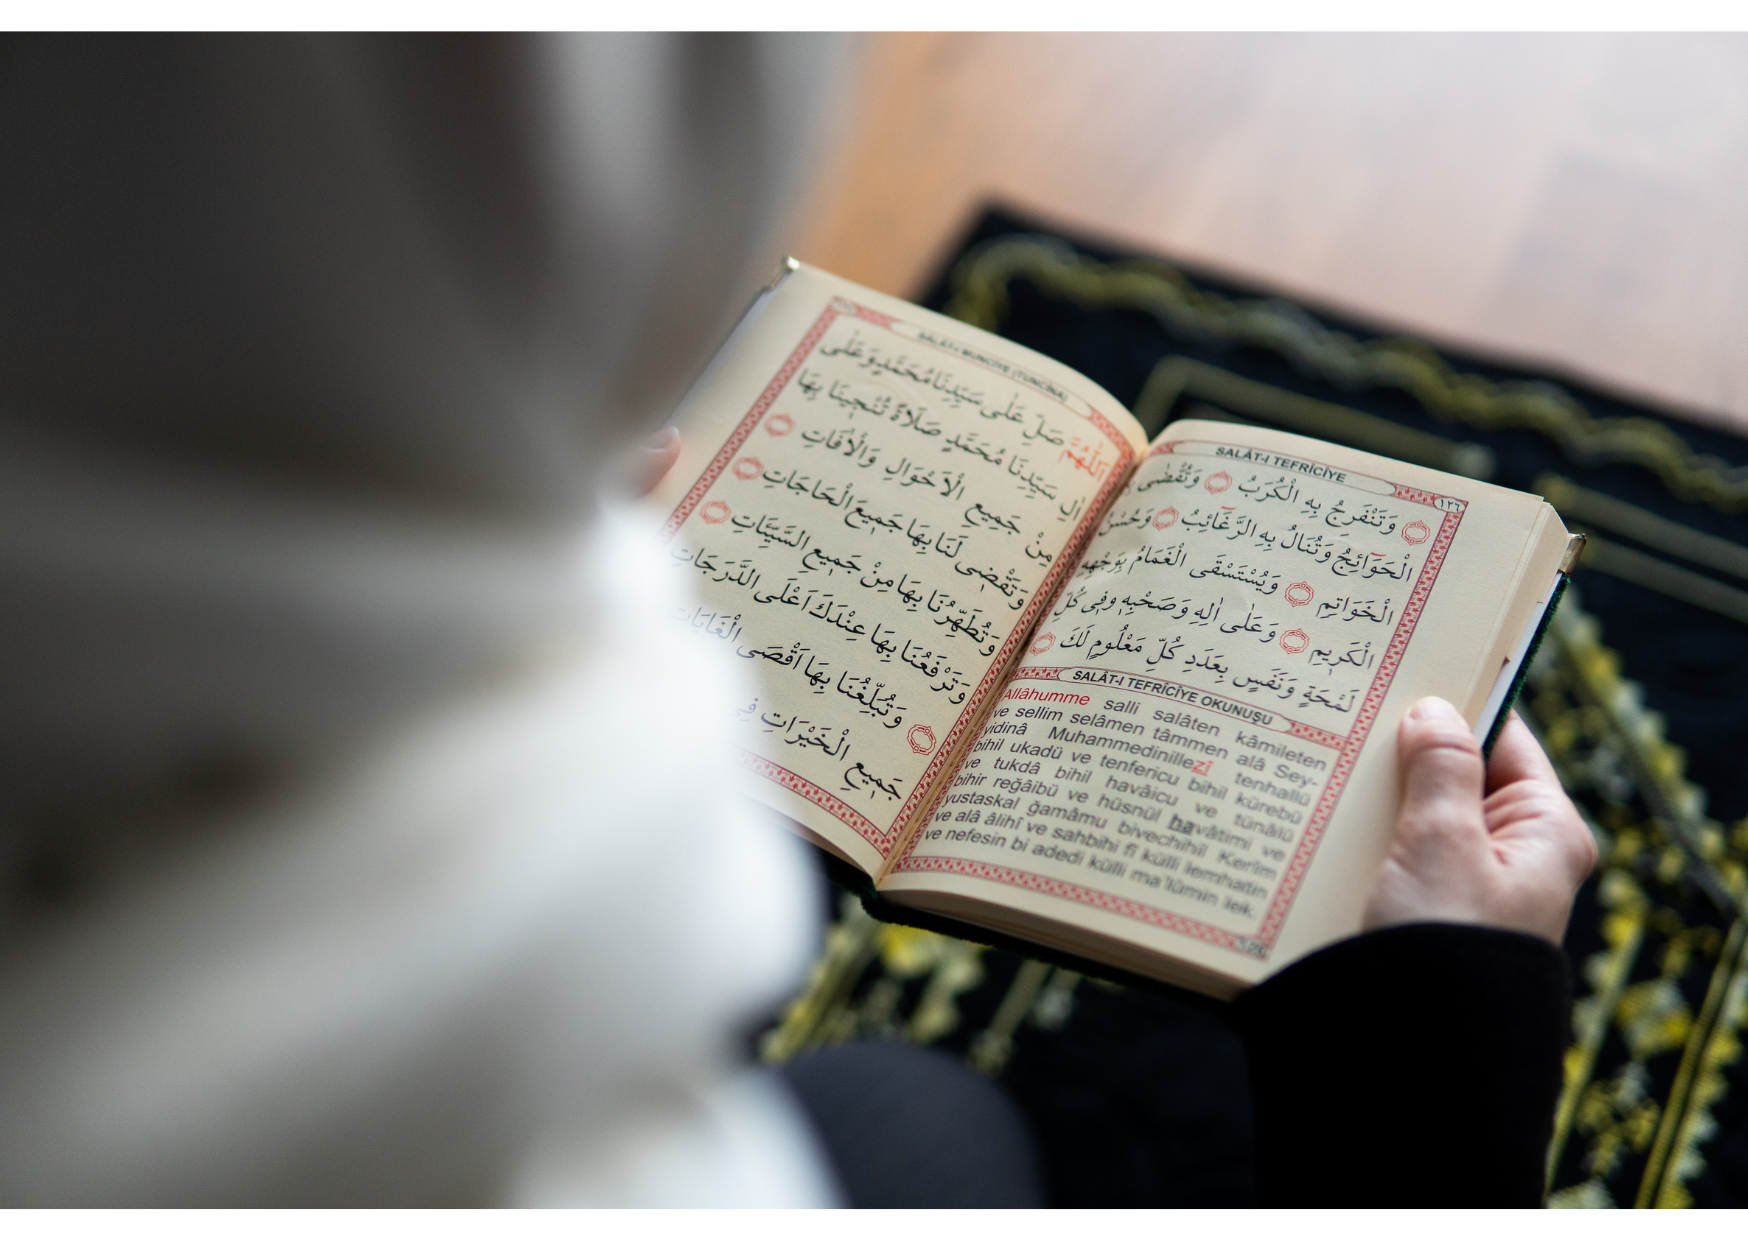 SALÂT-I TEFRÎCİYE ١٢٦
وَتَنْفَرِجُ بِهِ الْكُرَبُ وَتُقْضٰى
الْحَوَٓائِجُ وَتُنَالُ بِهِ الرَّغَٓائِبُ وَحُسْنُ
الْخَوَاتِمِ وَيُسْتَسْقَى الْغَمَامُ بِوَجْهِهِ
الْكَرِيمِ وَعَلٰى اٰلِهِ وَصَحْبِهِ وفِى كُلِّ
لَمْحَةٍ وَنَفَسٍ بِعَدَدِ كُلِّ مَعْلُومٍ لَكَ
SALÂT-I TEFRÎCİYE OKUNUŞU
Allâhumme salli salâten kâmileten
ve sellim selâmen tâmmen alâ Sey-
yidinâ Muhammedinillezî tenhallü
bihil ukadü ve tenfericu bihil kürebü
ve tukdâ bihil havâicu ve tünâlü
bihir reğâibü ve hüsnül havâtimi ve
yustaskal ğamâmu bivechihil Kerîm
ve alâ âlihî ve sahbihi fî külli lemhatin
ve nefesin bi adedi külli ma'lûmin lek.
SALÂT-I MÜNCİYE (TUNCÎNÂ)
اَللّٰهُمَّ صَلِّ عَلٰى سَيِّدِنَا مُحَمَّدٍ وَعَلٰٓى
اٰلِ سَيِّدِنَا مُحَمَّدٍ صَلَاةً تُنْجِينَا بِهَا
مِنْ جَمِيعِ الْاَحْوَالِ وَالْاٰفَاتِ
وَتَقْضِى لَنَا بِهَا جَمِيعَ الْحَاجَاتِ
وَتُطَهِّرُنَا بِهَا مِنْ جَمِيعِ السَّيِّئَاتِ
وَتَرْفَعُنَا بِهَا عِنْدَكَ اَعْلَى الدَّرَجَاتِ
وَتُبَلِّغُنَا بِهَا اَقْصَى الْغَايَاتِ
جَمِيعِ الْخَيْرَاتِ فِى